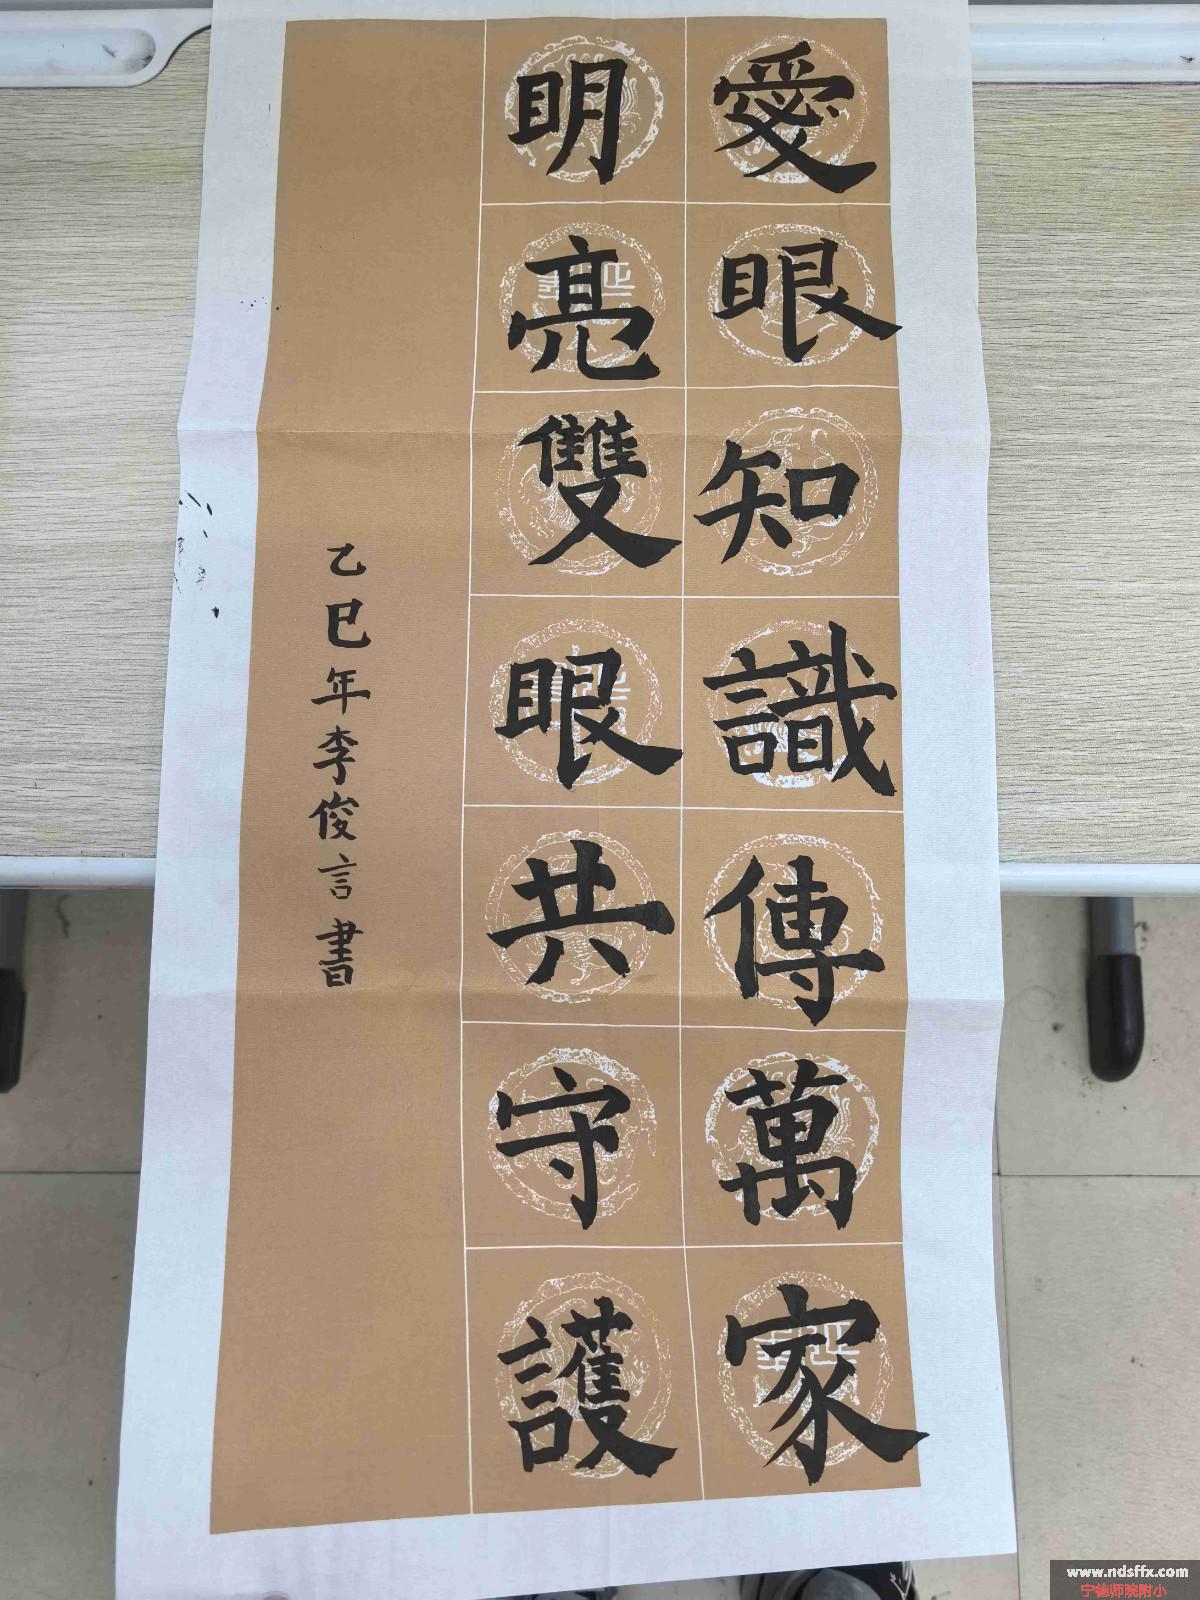 愛眼知識傳萬家
明亮雙眼共守護
乙巳年李俊言書
www.ndsffx.com
宁德师院附小